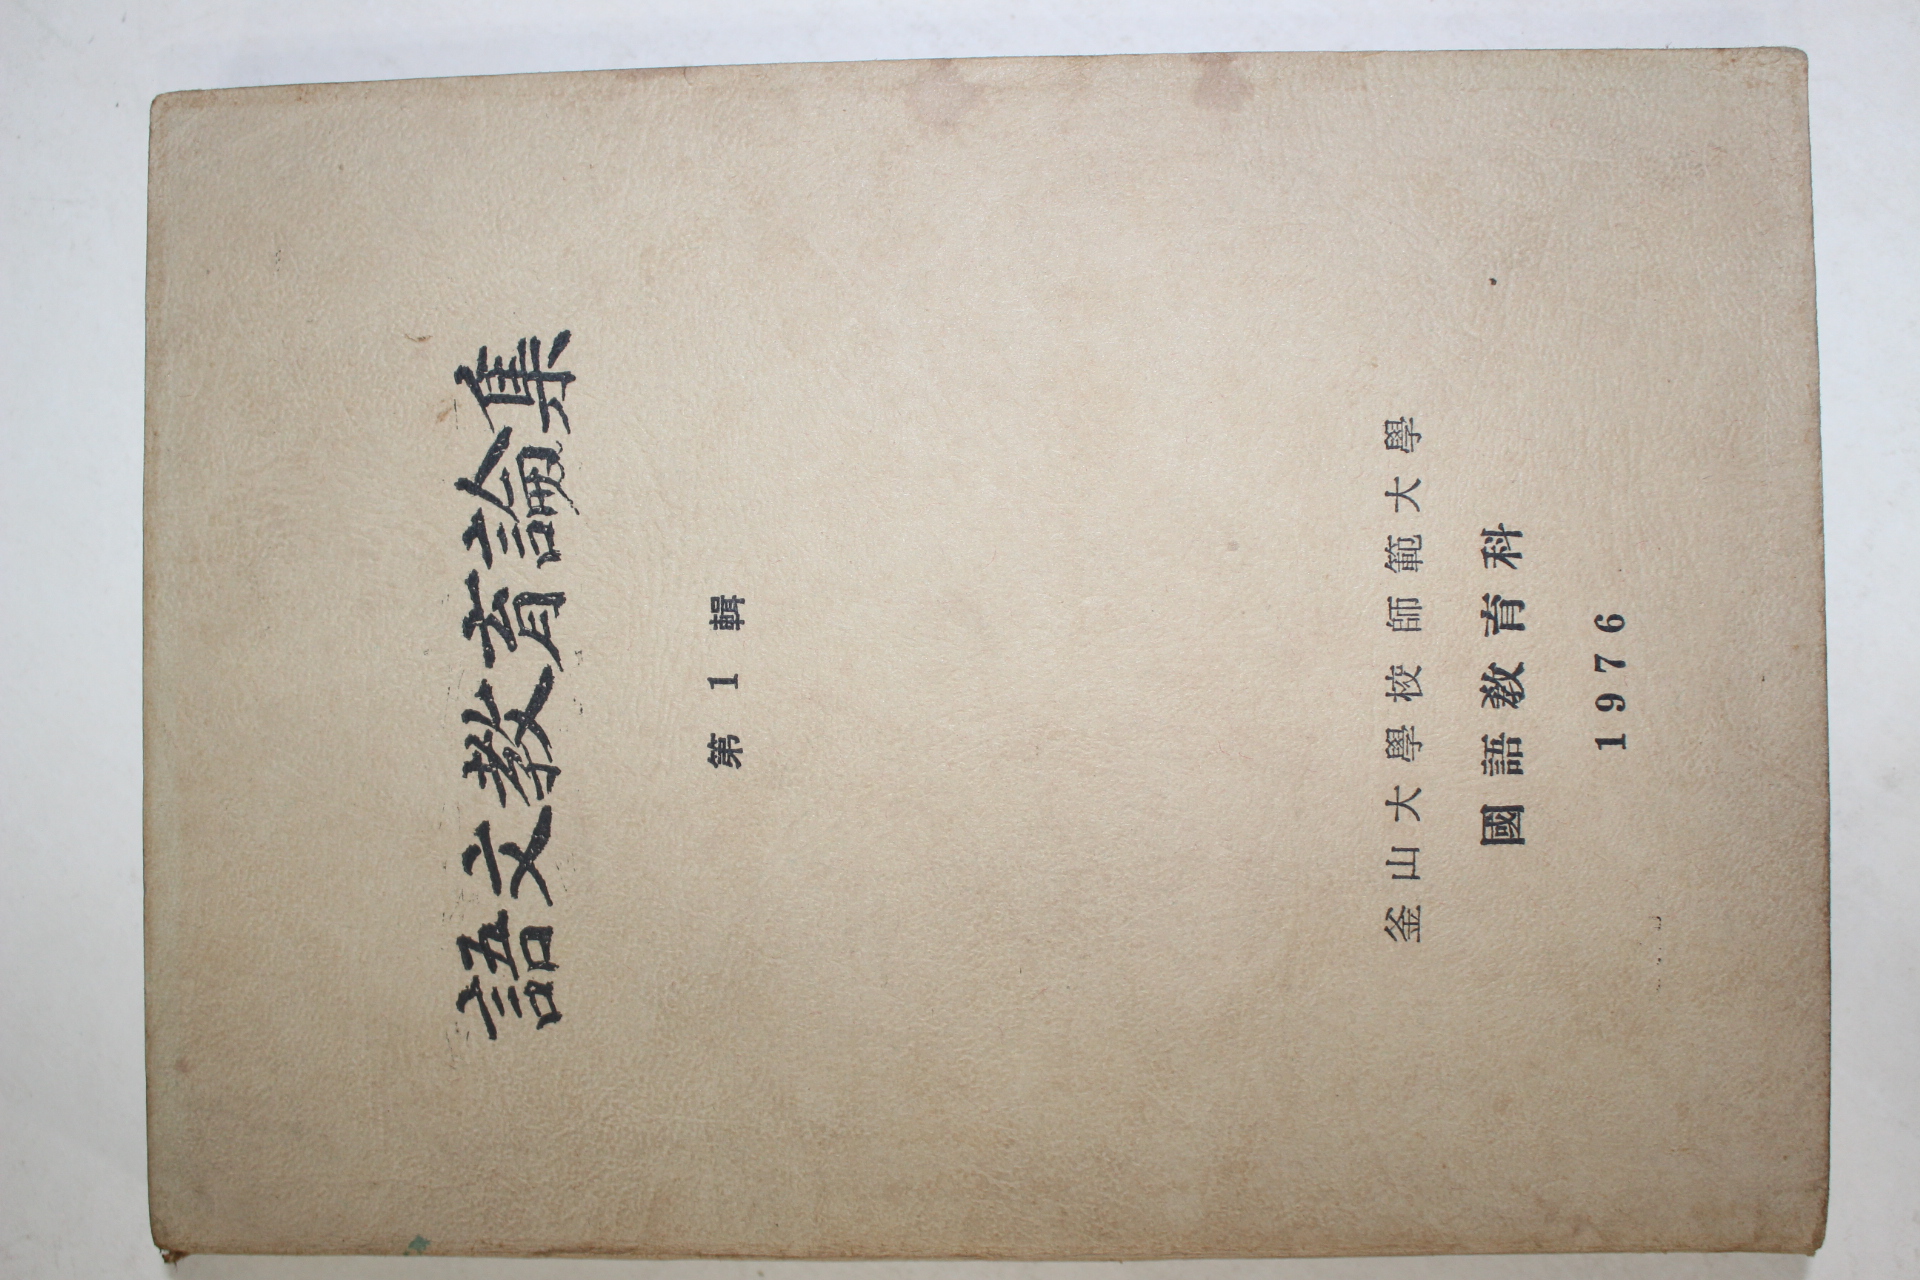 語文敎育論集
第1輯
釜山大學校師範大學
國語敎育科
1976